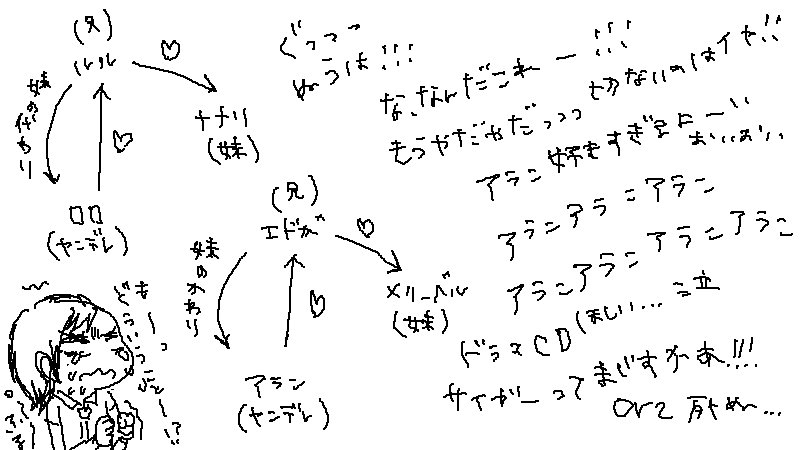 (兄)
ルル
♡
ナナリ
(妹)
妹の代わり
♡
ロロ
(ヤンデレ)
(兄)
エドガ
♡
メリーベル
(妹)
妹のかわり
♡
アラン
(ヤンデレ)
ぐっっっ
ぬうは!!!
な、なんだこれー!!!
もうやだやだっっっ 切ないのはイヤ!!
アラン好きすぎるよーい
おいいおいい
アランアランアラン
アランアランアランアラン
ドラマCDほしい…
サイガーってまじすかあ!!!
orz 死ぬ…
も〜っ
どういうこと〜!?